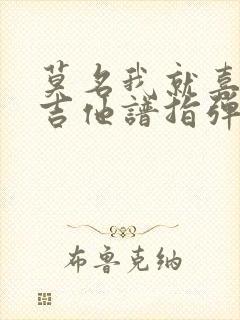 莫名我就喜
吉他谱指弹
布鲁克纳